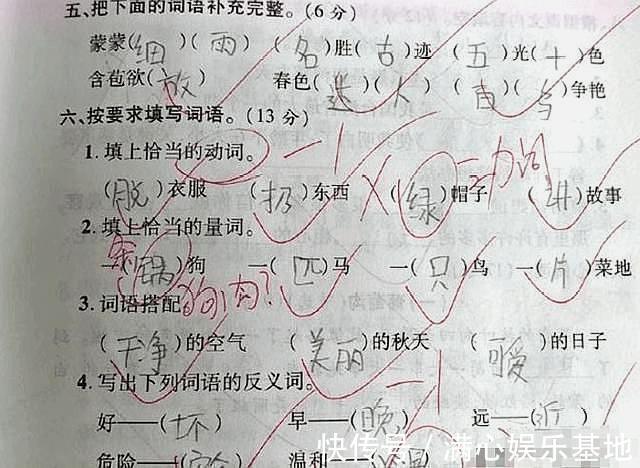 五、把下面的词语补充完整。(6 分)
蒙蒙(细)(雨) (名)胜(古)迹 (五)光(十)色
含苞欲(放) 春色(迷)(人) (百)(鸟)争艳
六、按要求填写词语。(13 分)
1. 填上恰当的动词。 -1
(脱)衣服 (扔)东西 (绿)帽子 动词 (讲)故事
2. 填上恰当的量词。
一(锅)狗 一(匹)马 一(只)鸟 一(片)菜地
条 狗肉?
3. 词语搭配
(干争)的空气 (美丽)的秋天 (可爱)的日子
4. 写出下列词语的反义词。 -1
好——(坏) 早——(晚) 远——(近)
危险——( 温和——(
快传号 / 满心娱乐基地